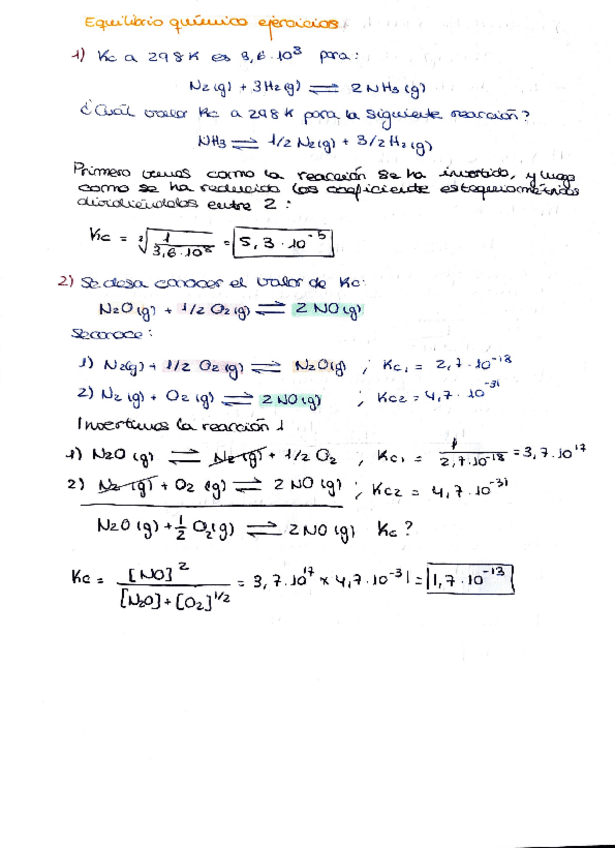 Equilibrio químico ejercicios
1) Kc a 298K es 3,6·10⁸ para:
N2(g) + 3H2(g) ⇌ 2NH3(g)
¿Cuál valor Kc a 298K para la siguiente reacción?
NH3 ⇌ 1/2 N2(g) + 3/2 H2(g)
Primero vemos como la reacción se ha invertido, y luego
como se ha reducido los coeficiente estequiométricos
dividiéndolos entre 2:
Kc = ²√(1/3,6·10⁸) = 5,3·10⁻⁵
2) Se desa conocer el valor de Kc:
N2O(g) + 1/2 O2(g) ⇌ 2NO(g)
Se conoce:
1) N2(g) + 1/2 O2(g) ⇌ N2O(g) ; Kc1 = 2,7·10⁻¹⁸
2) N2(g) + O2(g) ⇌ 2NO(g) ; Kc2 = 4,7·10⁻³¹
Invertimos la reacción 1
1) N2O(g) ⇌ N2(g) + 1/2 O2 , Kc1 = 1/2,7·10⁻¹⁸ = 3,7·10¹⁷
2) N2(g) + O2(g) ⇌ 2NO(g) ; Kc2 = 4,7·10⁻³¹
N2O(g) + 1/2 O2(g) ⇌ 2NO(g) Kc?
Kc = [NO]²/[N2O]+[O2]^1/2 = 3,7·10¹⁷ × 4,7·10⁻³¹ = 1,7·10⁻¹³